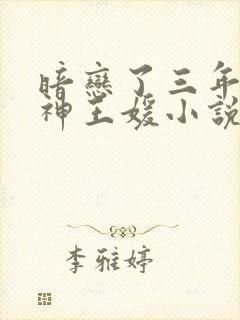 暗戀了三年
神王媛小說
李雅婷